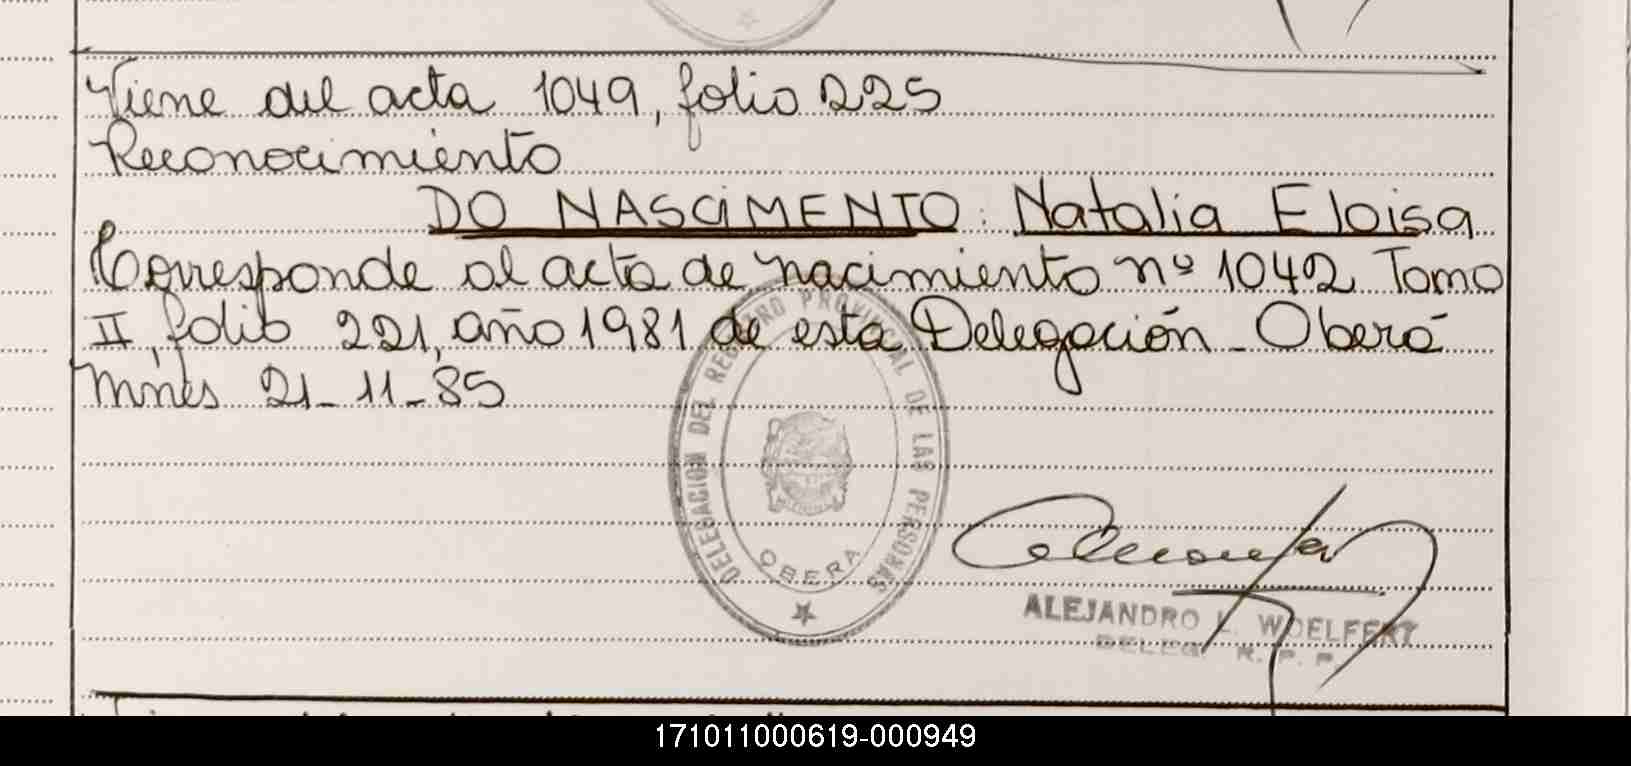 Viene del acta 1049, folio 225
Reconocimiento
DO NASCIMENTO: Natalia Eloisa
Corresponde al acta de nacimiento nº 1042 Tomo
II, folio 221, año 1981 de esta Delegación - Oberá
Mnes 21-11-85
DELEGACION DEL REGISTRO PROVINCIAL DE LAS PERSONAS
OBERA
ALEJANDRO L. WOELFERT
DELEG. R. P. P.
171011000619-000949